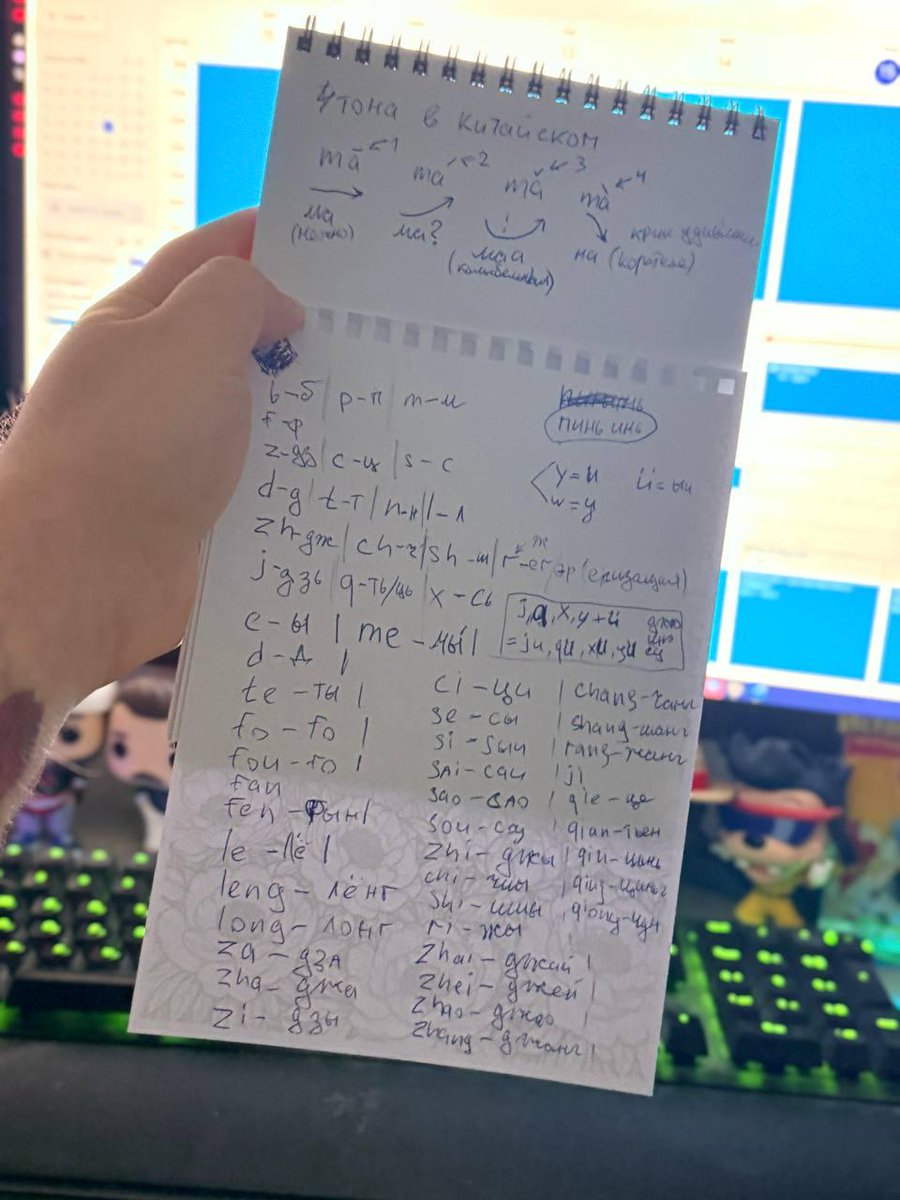 4 тона в китайском
mā ← 1 má ← 2 mǎ ← 3 mà ← 4
ма ма? маа на (коротко) крик удивления
(нежно) (колыбельная)
b-б | p-п | m-м
f-ф
пинь инь
z-дз | c-ц | s-с
y=и
w=у
d-g | t-т | n-н | l-л
zh-дж | ch-ч | sh-ш | r-er, эр (еризация)
ж
j-дзь | q-ть/ць | x-сь
j, q, x, y+ü
= ju, qu, xu, yu
e-ы | me-мы |
d-д |
te-ты |
fo-fo |
fou-fo |
fan
fen-фын |
le-лё |
leng-лёнг
long-лонг
za-дза
zha-джа
zi-дзы
ci-ци
se-сы
si-sыи
sai-саи
sao-сао
sou-соу
zhi-джы
chi-чыы
shi-шиы
ri-жы
zhai-джай |
zhei-джей |
zhao-джао
zhang-джанг |
| chang-чанг
| shang-шанг
| rang-жанг
| ji
| qie-це
| qian-тьен
| qin-цинь
| qing-цинг
| qiong-цун